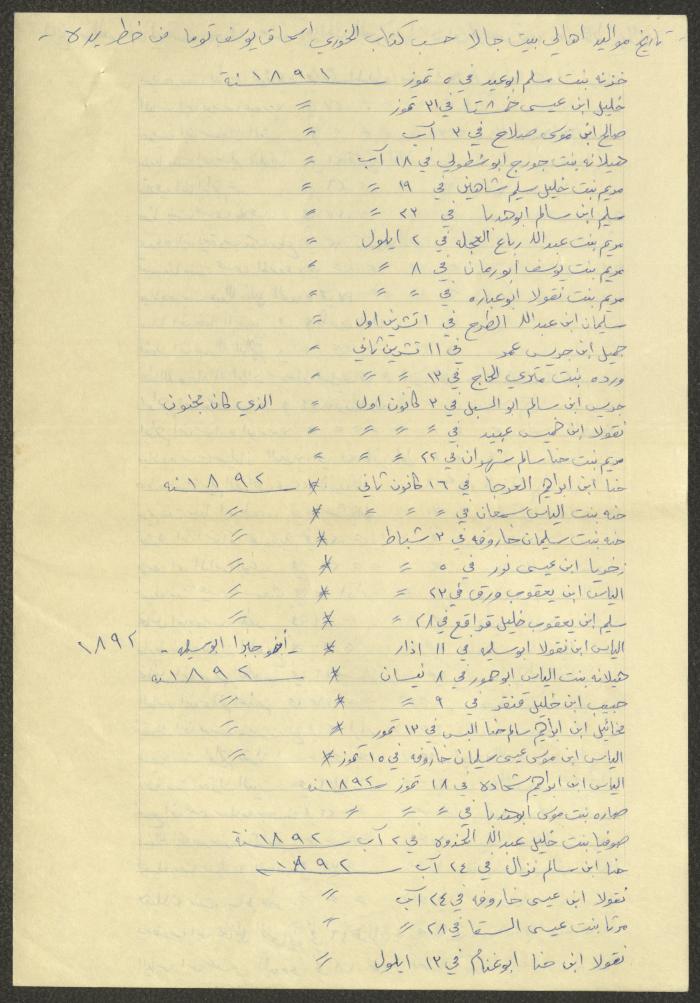 - تاريخ مواليد اهالي بيت جالا حسب كتاب الخوري اسحاق يوسف توما من خط يده -
حزنه بنت سلم ابو عيد في ٥ تموز ١٨٩١ سنة
خليل ابن عيسى خمشتا في ٣١ تموز =
صالح ابن موسى صلاح في ٣ آب =
هيلانه بنت جورج ابو سطولي في ١٨ آب =
مريم بنت خليل سليم شاهين في ١٩ = =
سليم ابن سالم ابو هدبا في ٢٣ = =
مريم بنت عبد الله رباع العجله في ٢ ايلول =
مريم بنت يوسف ابو رمان في ٨ = =
مريم بنت نقولا ابو عباره في = = =
سليمان ابن عبد الله الطرح في ١ تشرين اول =
جميل ابن جريس عمر في ١١ تشرين ثاني =
ورده بنت متري الحاج في ١٣ = = =
جريس ابن سالم ابو السبل في ٣ كانون اول = الذي كان مجنون
نقولا ابن خميس عبيد في = = = =
مريم بنت حنا سالم شهوان في ٢٢ = = =
حنا ابن ابراهيم العرجا في ١٦ كانون ثاني * ١٨٩٢ سنه
حنه بنت الياس سمعان في = = = * =
حنه بنت سليمان خاروفه في ٣ شباط * =
زخريا ابن عيسى نور في ٥ = * =
الياس ابن يعقوب ورق في ٢٣ = * =
سليم ابن يعقوب خليل قواقع في ٢٨ = * =
الياس ابن نقولا ابو سليه في ١١ اذار * - أخو جابر ابو سليه - ١٨٩٢
هيلانه بنت الياس ابو حمور في ٨ نيسان * ١٨٩٢ سنه
حبيب ابن خليل قنقر في ٩ = * =
مخائيل ابن ابراهيم سالم حنا البس في ١٣ تموز * =
الياس ابن موسى عيسى سليمان خاروفه في ١٥ تموز * =
الياس ابن ابراهيم شحاده في ١٨ تموز ١٨٩٢ سنه
ساره بنت موسى ابو هدبا في = = =
صوفيا بنت خليل عبد الله الخذوه في ٢ آب ١٨٩٢ سنة
حنا ابن سالم نزال في ٢٤ آب ١٨٩٢
نقولا ابن عيسى خاروفه في ٢٤ آب =
مرتا بنت عيسى السقا في ٢٨ = =
نقولا ابن حنا ابو غنام في ١٣ ايلول =